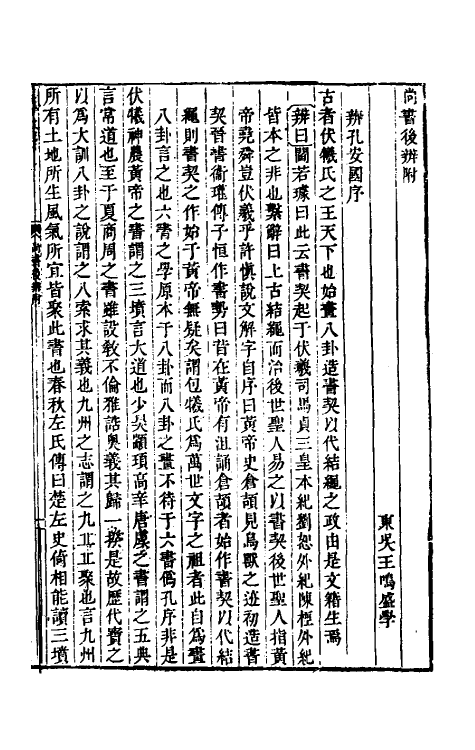 尚書後辨附
東吳王鳴盛學
辨孔安國序
古者伏犧氏之王天下也始畫八卦造書契以代結繩之政由是文籍生焉
辨曰閻若璩曰此云書契起于伏羲司馬貞三皇本紀劉恕外紀陳桱外紀
皆本之非也繫辭曰上古結繩而治後世聖人易之以書契後世聖人指黃
帝堯舜豈伏羲乎許慎說文解字自序曰黃帝史倉頡見鳥獸之迹初造書
契晉書衛瓘傳子恒作書勢曰昔在黃帝有沮誦倉頡者始作書契以代結
繩則書契之作始于黃帝無疑矣謂包犧氏爲萬世文字之祖者此自爲畫
八卦言之也六書之學原本于八卦而八卦之畫不待于六書僞孔序非是
伏犧神農黃帝之書謂之三墳言大道也少昊顓頊高辛唐虞之書謂之五典
言常道也至于夏商周之書雖設敎不倫雅誥奧義其歸一揆是故歷代寶之
以爲大訓八卦之說謂之八索求其義也九州之志謂之九丠丠聚也言九州
所有土地所生風氣所宜皆聚此書也春秋左氏傳曰楚左史倚相能讀三墳
尚書後辨附